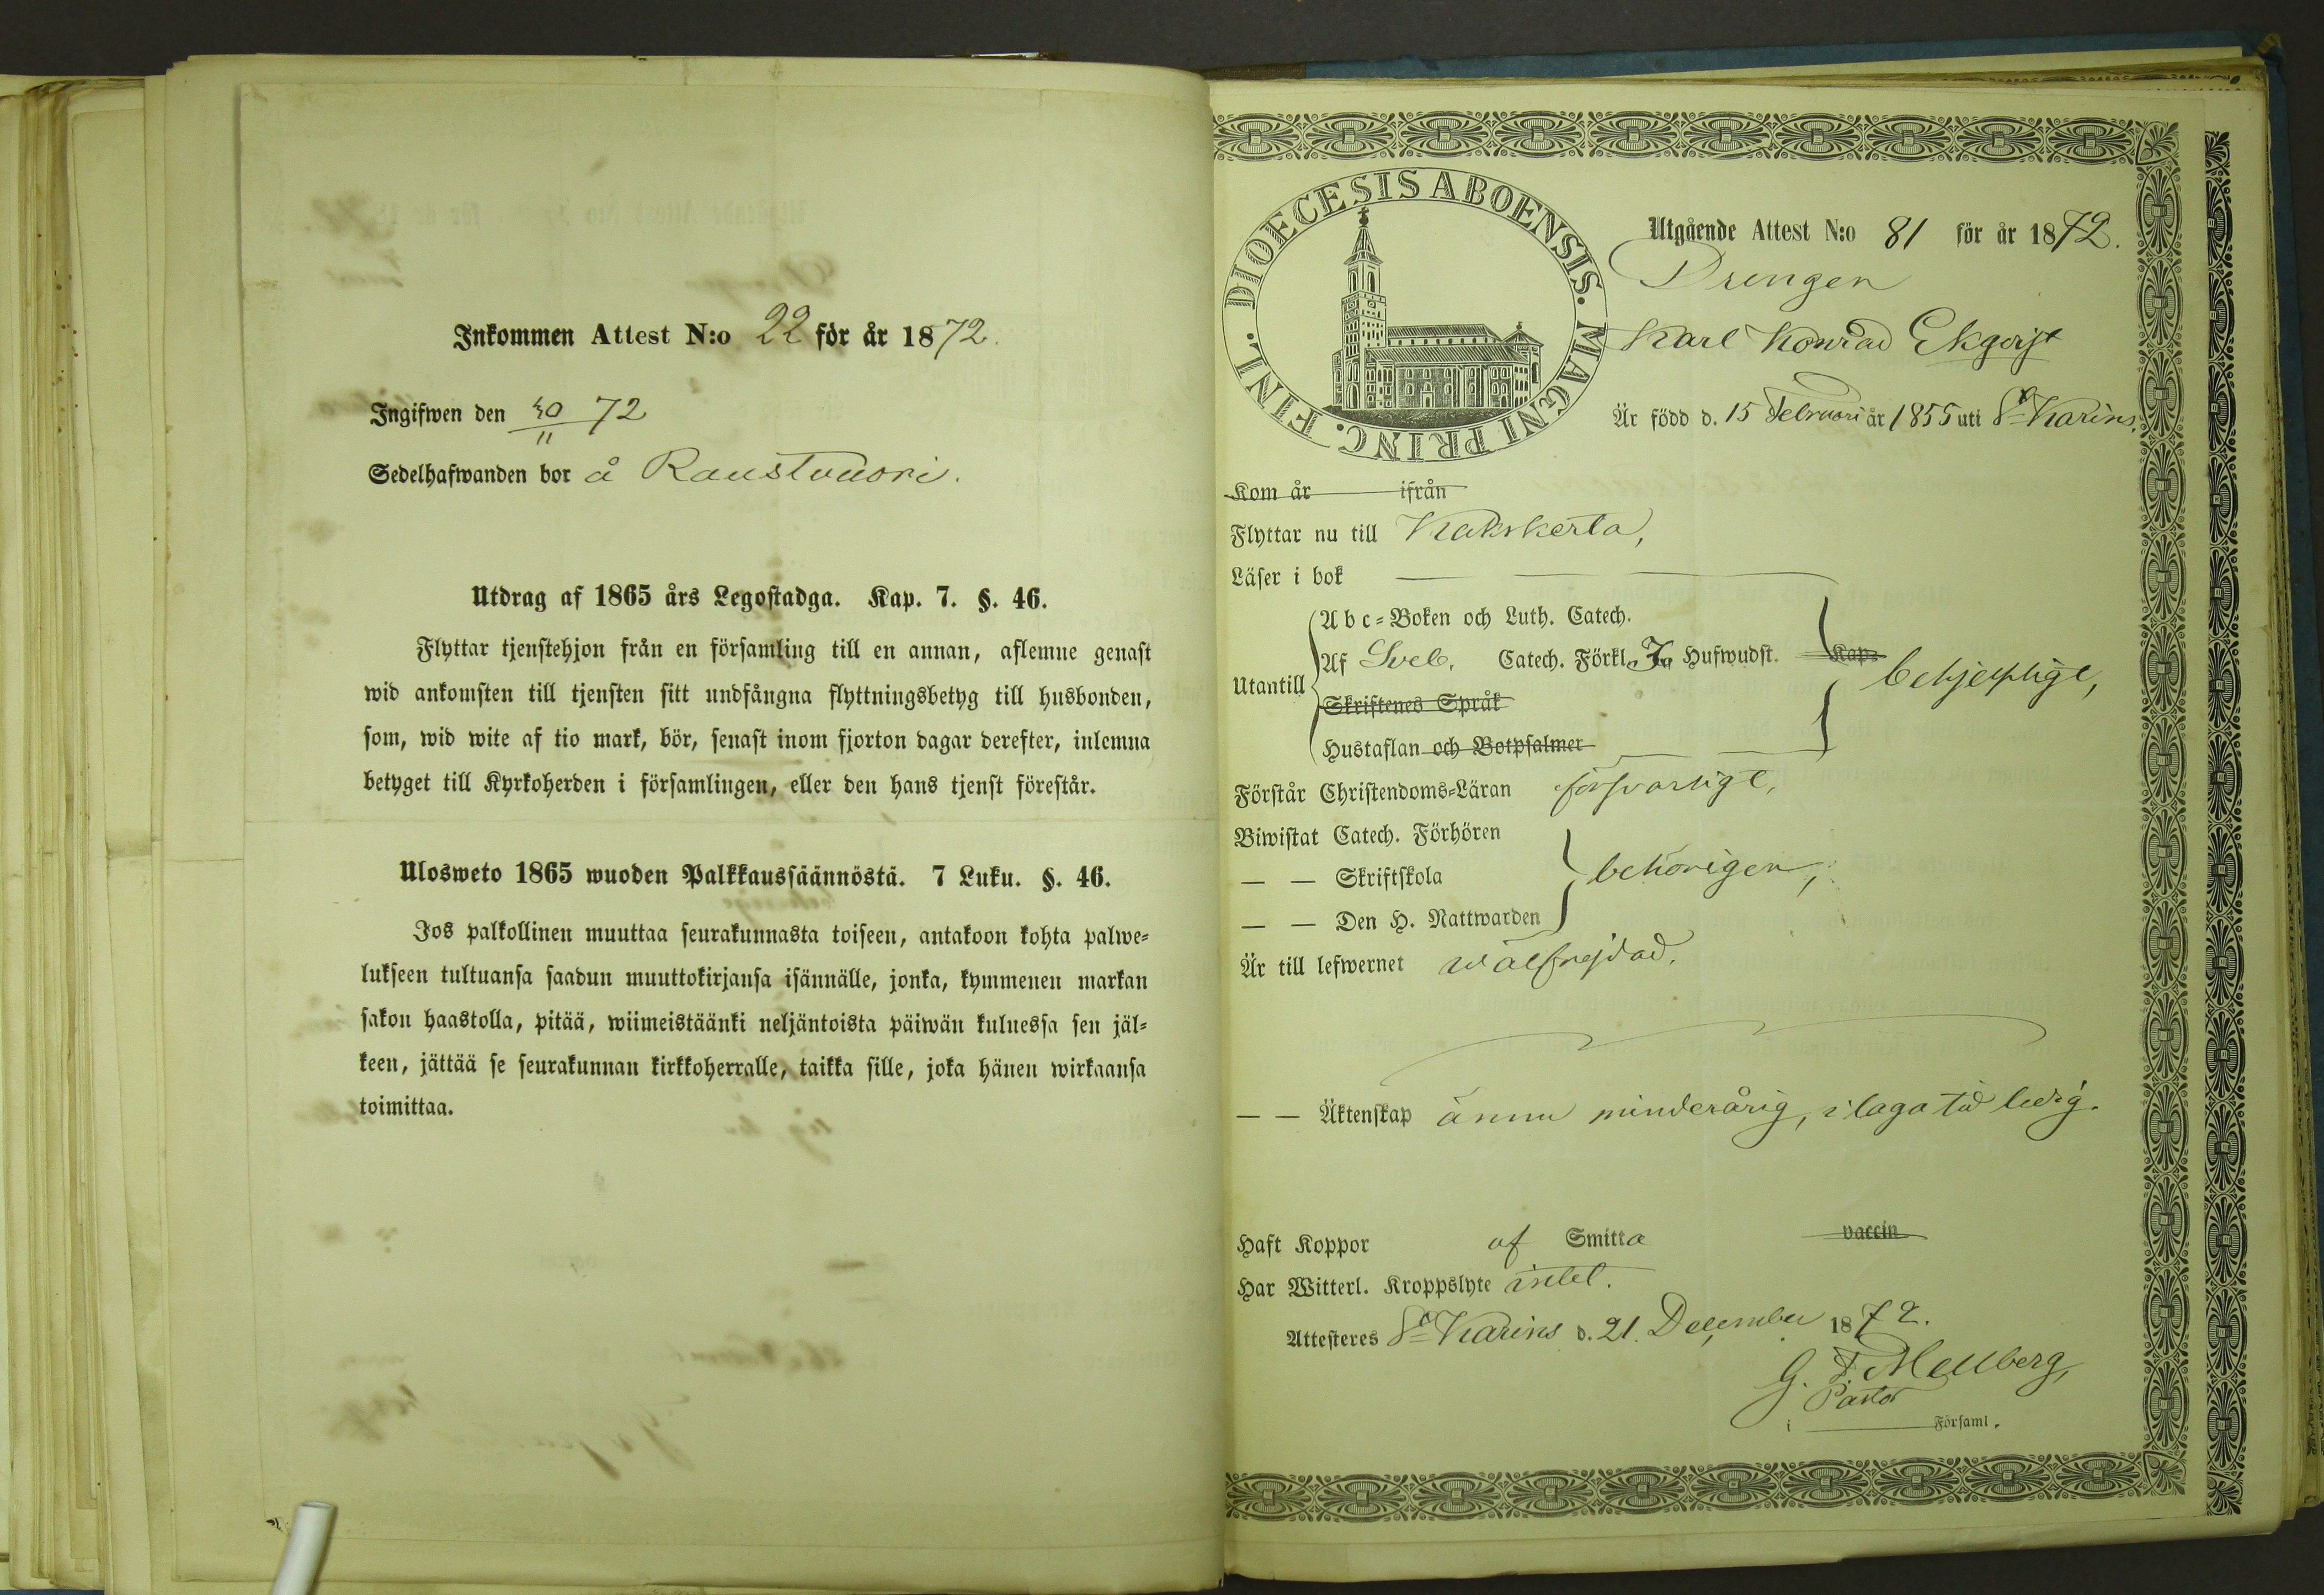 Inkommen Attest N:o 22 för år 1872.
Ingifwen den 30/11 72
Sedelhafwanden bor å Raustvuori.
Utdrag af 1865 års Legostadga. Kap. 7. §. 46.
Flyttar tjenstehjon från en församling till en annan, aflemne genast
wid ankomsten till tjensten sitt undfångna flyttningsbetyg till husbonden,
som, wid wite af tio mark, bör, senast inom fjorton dagar derefter, inlemna
betyget till Kyrkoherden i församlingen, eller den hans tjenst förestår.
Ulosweto 1865 wuoden Palkkaussäännöstä. 7 Luku. §. 46.
Jos palkollinen muuttaa seurakunnasta toiseen, antakoon kohta palwe-
lukseen tultuansa saadun muuttokirjansa isännälle, jonka, kymmenen markan
sakon haastolla, pitää, wiimeistäänki neljäntoista päiwän kuluessa sen jäl-
keen, jättää se seurakunnan kirkkoherralle, taikka sille, joka hänen wirkaansa
toimittaa.
DIOECESIS ABOENSIS. MAGNI PRINC. FINL.
Utgående Attest N:o 81 för år 1872.
Drengen
Karl Konrad Ekqvist
Är född d. 15 Februari år 1855 uti St Karins.
Kom år ifrån
Flyttar nu till Kakskerta,
Läser i bok
Utantill
Abc-Boken och Luth. Catech.
Af Sveb. Catech. Förkl. Hufwudst. Kap.
Skriftenes Språk
Hustaflan och Botpsalmer
behjelplige,
Förstår Christendoms-Läran försvarligt,
Biwistat Catech. Förhören
— — Skriftskola behörigen,
— — Den H. Nattwarden
Är till lefwernet wälfrejdad.
— — Äktenskap ännu minderårig, i laga tid ledig.
Haft Koppor af Smitta vaccin
Har Witterl. Kroppslyte intet.
Attesteres St Karins d. 21. December 1872.
G. F. Mellberg,
Pastor
i Församl.